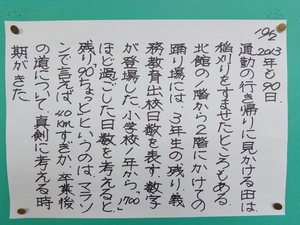 10/2 2013年も90日。
通勤の行き帰りに見かける田は
稲刈りをすませたところもある。
北館の1階から2階にかけての
踊り場には、3年生の残り義
務教育出校日数を表す、数字
が登場した。小学校1年から、1700
ほど過ごした日数を考えると
残り"90ちょっと"というのは、マラソ
ンで言えば、40kmすぎか。卒業後
の道について、真剣に考える時
期がきた。